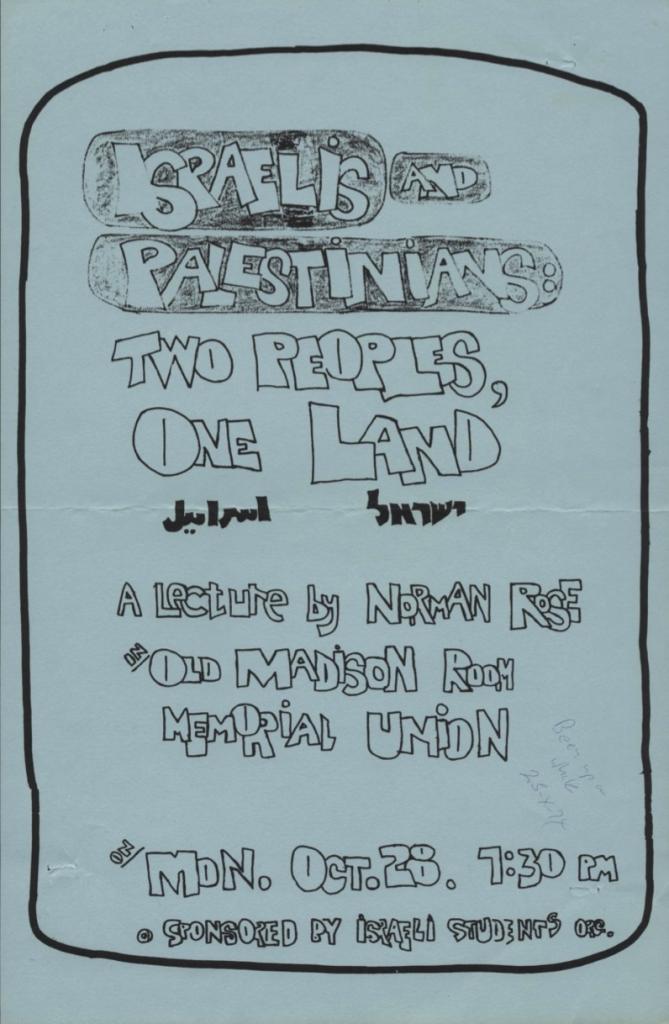 ISRAELIS AND
PALESTINIANS:
TWO PEOPLES,
ONE LAND
اسرائيل ישראל
A Lecture by NORMAN ROSE
IN OLD MADISON ROOM
MEMORIAL UNION
Been up a
while
25-X-74
ON MON. OCT. 28. 7:30 PM
SPONSORED BY ISRAELI STUDENTS ORG.